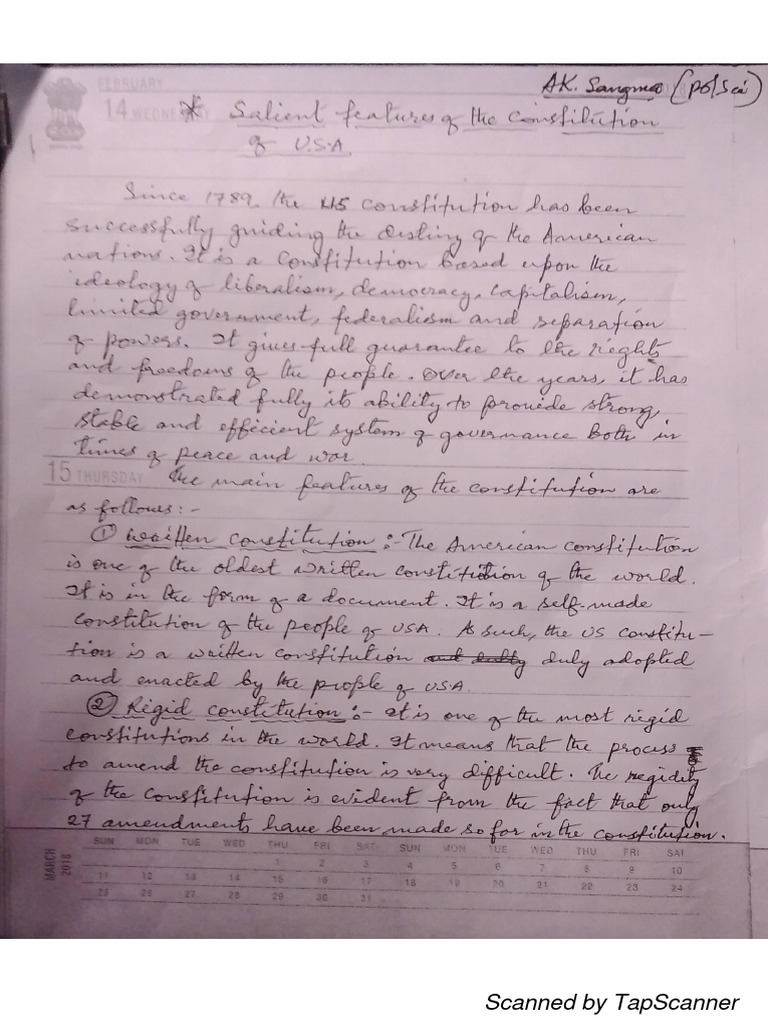 AK. Sangma (Pol Sci)
FEBRUARY
14 WEDNESDAY
* Salient features of the Constitution
of U.S.A.
Since 1789 the US constitution has been
successfully guiding the destiny of the American
nations. It is a Constitution based upon the
ideology of liberalism, democracy, capitalism,
limited government, federalism and separation
of powers. It gives full guarantee to the rights
and freedoms of the people. Over the years, it has
demonstrated fully its ability to provide strong,
stable and efficient system of governance both in
times of peace and war.
15 THURSDAY
The main features of the constitution are
as follows:-
① Written constitution :- The American constitution
is one of the oldest written constitution of the world.
It is in the form of a document. It is a self-made
constitution of the people of USA. As such, the US constitu-
tion is a written constitution and dully duly adopted
and enacted by the people of USA.
② Rigid constitution :- It is one of the most rigid
constitutions in the world. It means that the process
to amend the constitution is very difficult. The regidity
of the constitution is evident from the fact that only
27 amendments have been made so far in the constitution.
MARCH 2018
SUN MON TUE WED THU FRI SAT SUN MON TUE WED THU FRI SAT
1 2 3 4 5 6 7 8 9 10
11 12 13 14 15 16 17 18 19 20 21 22 23 24
25 26 27 28 29 30 31
Scanned by TapScanner